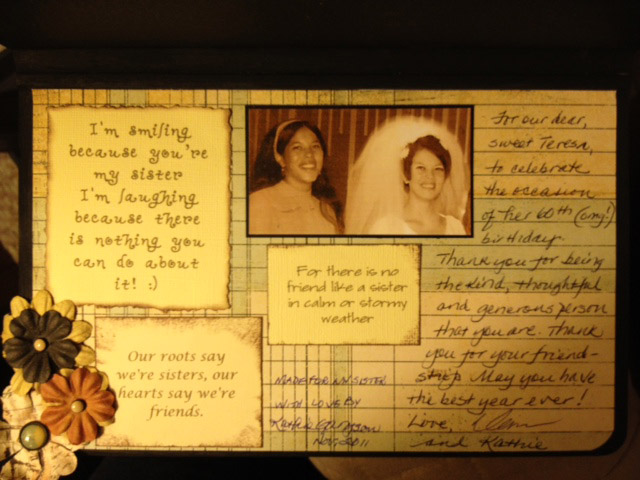 I'm smiling
because you're
my sister
I'm laughing
because there
is nothing you
can do about
it! :)
For there is no
friend like a sister
in calm or stormy
weather
Our roots say
we're sisters, our
hearts say we're
friends.
MADE FOR MY SISTER
WITH LOVE BY
Kathie
NOV. 2011
For our dear,
sweet Teresa,
to celebrate
the occasion
of her 60th (omg!)
birthday.
Thank you for being
the kind, thoughtful
and generous person
that you are. Thank
you for your friend-
ship. May you have
the best year ever!
Love,
and Kathie